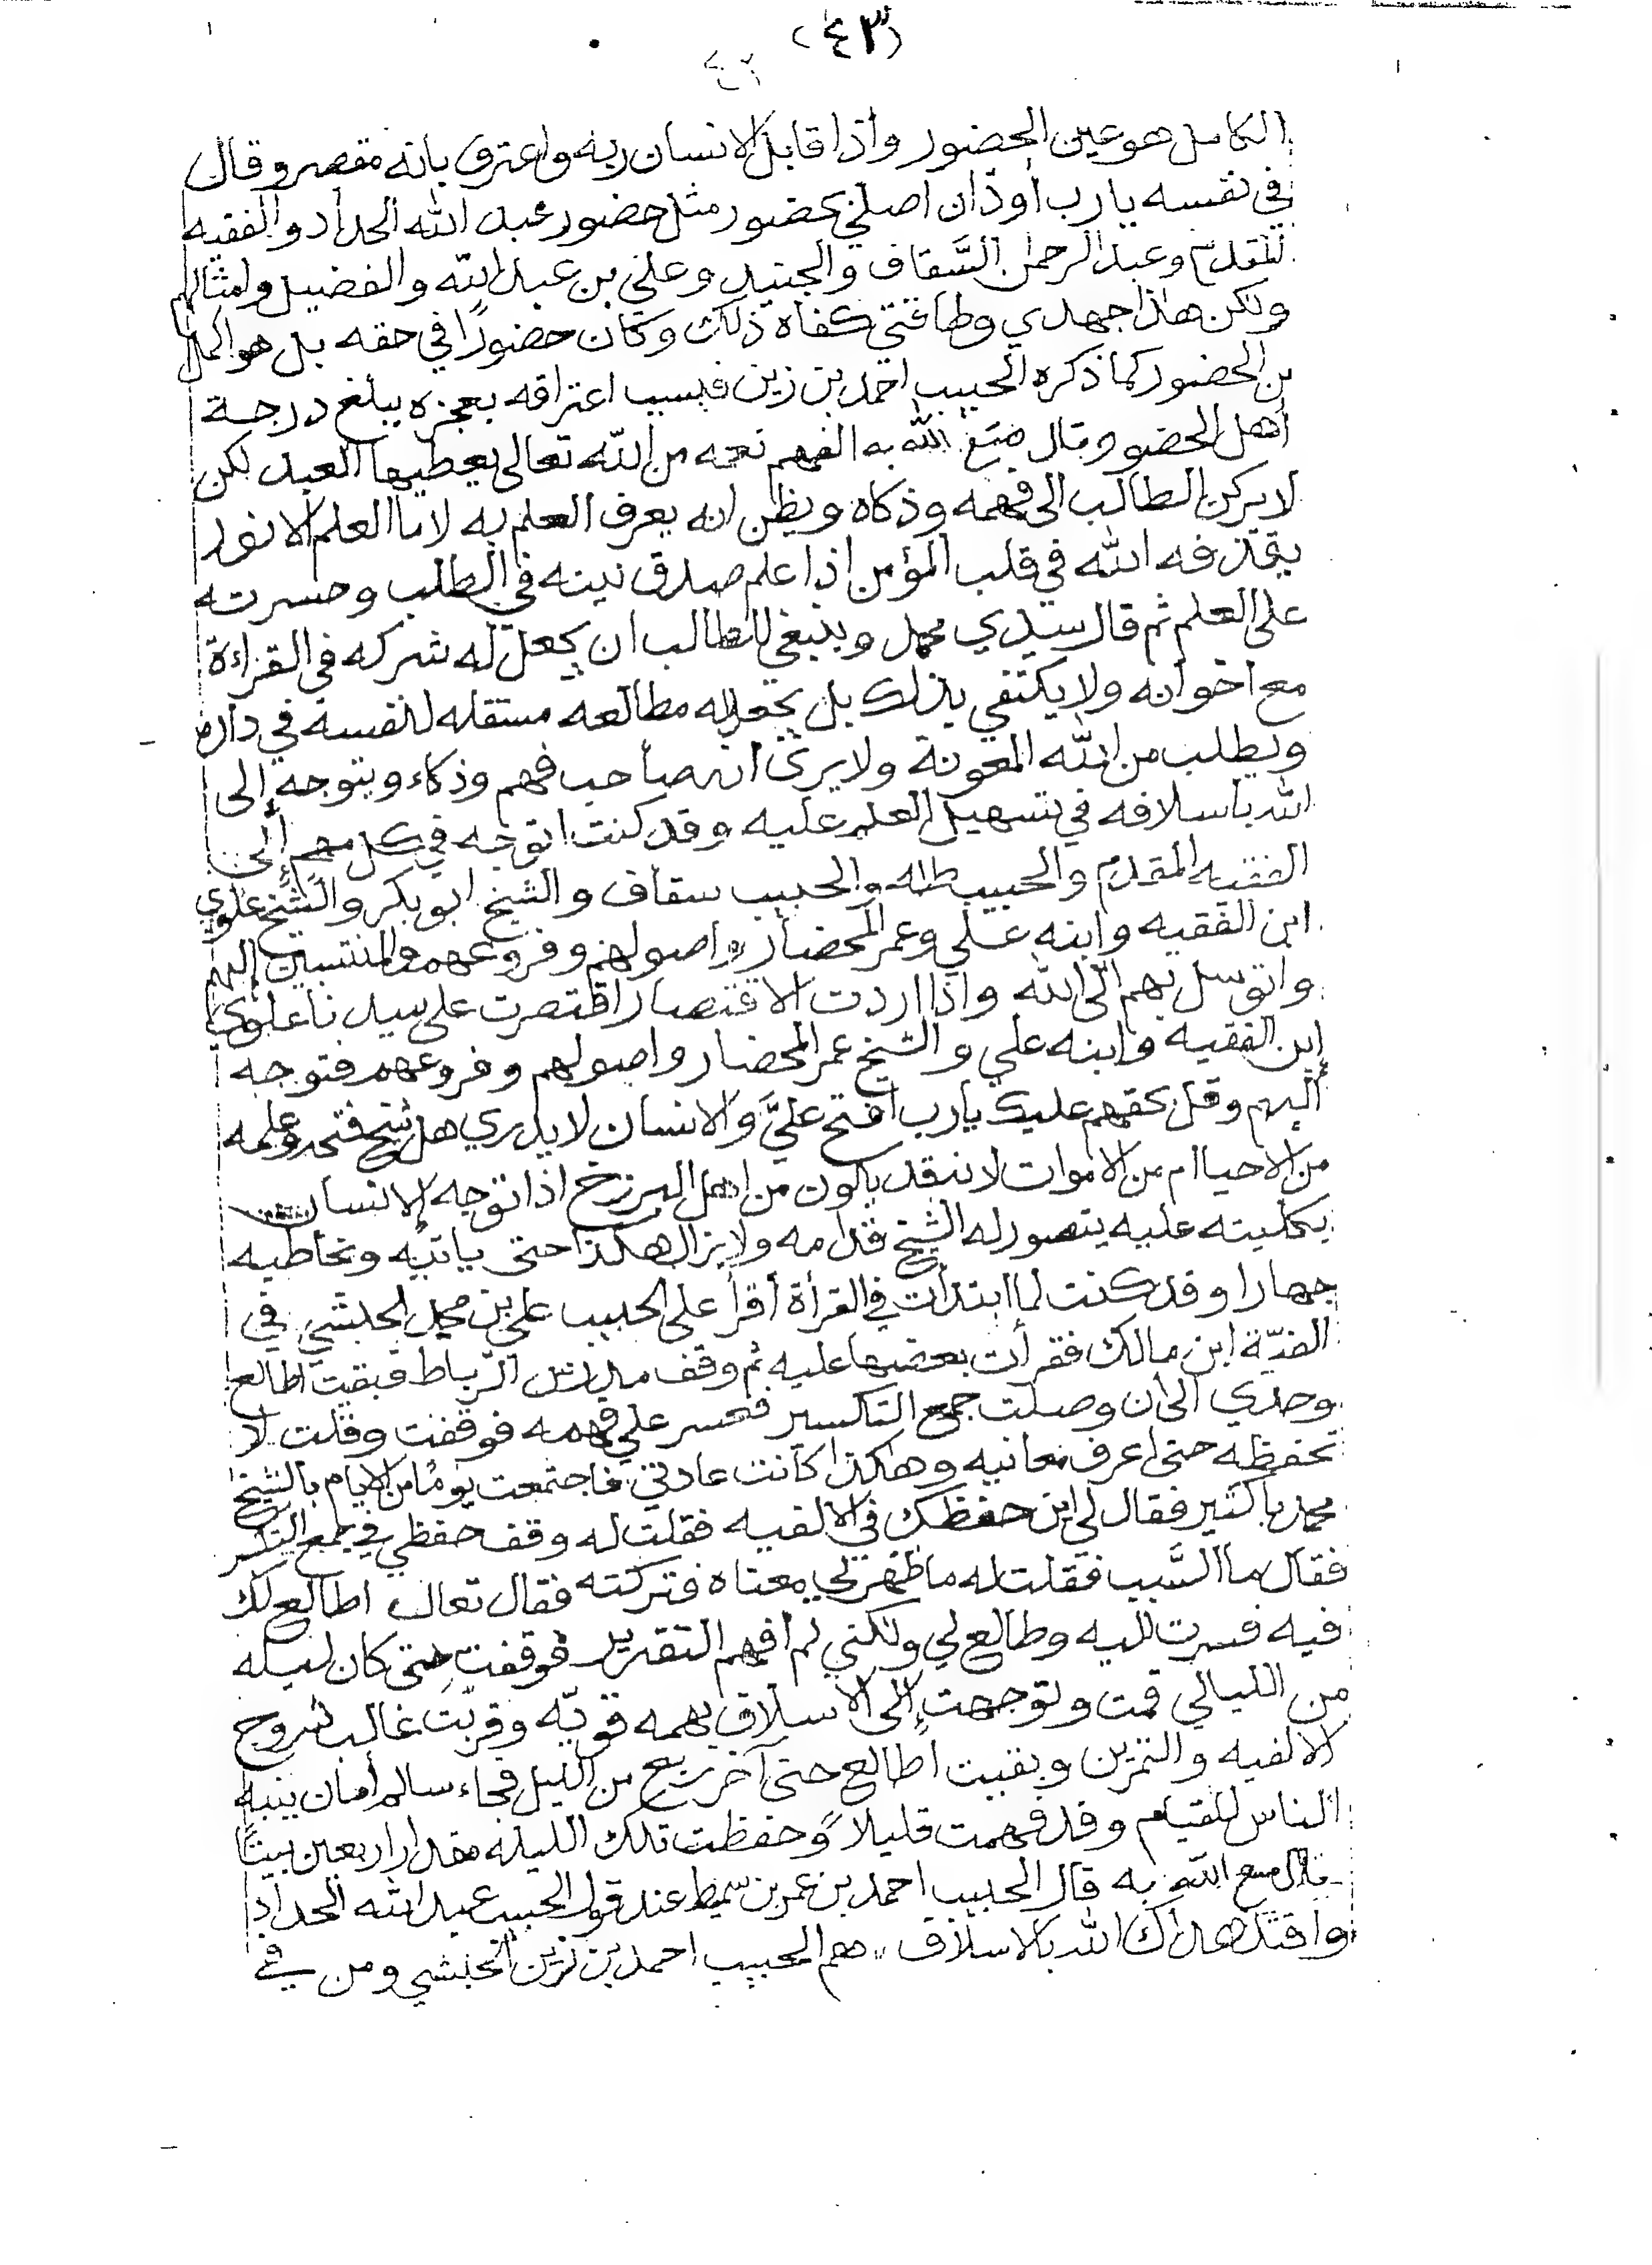 (٤٣)
الكامل هو عين الحضور واذا قابل الانسان ربه واعترف بانه مقصر وقال
في نفسه يارب اودّ ان اصلي بحضور مثل حضور عبد الله الحداد والفقيه
المقدم وعبد الرحمن السَّقاف والجنيد وعلي بن عبد الله والفضيل وامثالهم
ولكن هذا جهدي وطاقتي كفاه ذلك وكان حضورًا في حقه بل هو اكمل
من الحضور كما ذكره الحبيب احمد بن زين فبسبب اعترافه بعجزه يبلغ درجة
أهل الحضور وقال متع الله به الفهم نعمه من الله تعالى يعطيها العبد لكن
لا يركن الطالب الى فهمه وذكاه ويظن انه يعرف العلم به لاما العلم الا نور
يقذفه الله في قلب المؤمن اذا علم صدق نيته في الطلب وحسرته
على العلم ثم قال سيدي محمد وينبغي للطالب ان يجعل له شركه في القراءة
مع اخوانه ولا يكتفي بذلك بل يجعل له مطالعه مستقله لنفسه في داره
ويطلب من الله المعونة ولا يرى انه صاحب فهم وذكاء ويتوجه إلى
الله باسلافه في تسهيل العلم عليه وقد كنت اتوجه في كل مهم إلى
الفقيه المقدم والحبيب طه والحبيب سقاف والشيخ ابو بكر والشيخ علوي
ابن الفقيه وابنه علي وعمر المحضار واصولهم وفروعهم والمنتسبين إليهم
واتوسل بهم الى الله واذا اردت الاقتصار اقتصرت على سيدنا علوي
ابن الفقيه وابنه علي والشيخ عمر المحضار واصولهم وفروعهم فتوجه
اليهم وقل بحقهم عليك يارب افتح عليَّ والانسان لا يدري هل شيخ فتحه وعلمه
من الاحيا ام من الاموات لانه قد يكون من اهل البرزخ اذا توجه الانسان
بكليته عليه يتصور له الشيخ قدامه ولا يزال هكذا حتى ياتيه ويخاطبه
جهارا وقد كنت لما ابتدأت في القرأة أقرأ على الحبيب علي بن محمد الحبشي في
الفيّة ابن مالك فقرأت بعضها عليه ثم وقف مدرس الرباط فبقيت اطالع
وحدي الى ان وصلت جمع التكسير فعسر علي فهمه فوقفت وقلت لا
تحفظه حتى اعرف معانيه وهاكذا كانت عادتي فاجتمعت يومًا من الايام بالشيخ
محمد باكثير فقال لي اين حفظك في الالفيه فقلت له وقف حفظي في جمع التكسير
فقال ما السَّبب فقلت له ما ظهر لي معناه فتركته فقال تعال اطالع لك
فيه فسرت لليه وطالع لي ولكني لم افهم التقرير فوقفت حتى كان ليله
من الليالي قمت وتوجهت إلى الاسلاف بهمه قويّه وقربّت غالب شروح
الالفيه والتمرين وبقيت اطالع حتى آخر ربع من الليل فجاء سالم أمان ينبه
الناس للقيام وقد فهمت قليلاً وحفظت تلك الليله مقدار اربعين بيتًا
قال متع الله به قال الحبيب احمد بن عمر بن سميط عند قول الحبيب عبد الله الحداد
واقتد هداك الله بالاسلاف ،، هم الحبيب احمد بن زين الحبشي ومن في